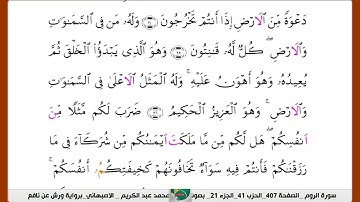 دَعْوَةً مِّنَ اَ۬لَارْضِ إِذَا أَنتُمْ تَخْرُجُونَۖ ٢٤ وَلَهُۥ مَن فِے اِ۬لسَّمَٰوَٰتِ
وَالَارْضِۖ كُلّٞ لَّهُۥ قَٰنِتُونَۖ ٢٥ وَهُوَ اَ۬لذِے يَبْدَؤُاْ اُ۬لْخَلْقَ ثُمَّ
يُعِيدُهُۥ وَهُوَ أَهْوَنُ عَلَيْهِۖ وَلَهُ اُ۬لْمَثَلُ اُ۬لَاعْلَىٰ فِے اِ۬لسَّمَٰوَٰتِ
وَالَارْضِۖ وَهُوَ اَ۬لْعَزِيزُ اُ۬لْحَكِيمُۖ ٢٦ ضَرَبَ لَكُم مَّثَلاٗ مِّنَ
اَنفُسِكُمْۖ هَل لَّكُم مِّن مَّا مَلَكَتَ اَيْمَٰنُكُم مِّن شُرَكَآءَ فِے مَا
رَزَقْنَٰكُمْ فَأَنتُمْ فِيهِ سَوَآءٞ تَخَافُونَهُمْ كَخِيفَتِكُمُۥٓ أَنفُسَكُمْۖ
سورة الروم _ الصفحة 407_الحزب 41_الجزء 21 _ بصوت محمد عبد الكريم _ الاصبهاني_برواية ورش عن نافع